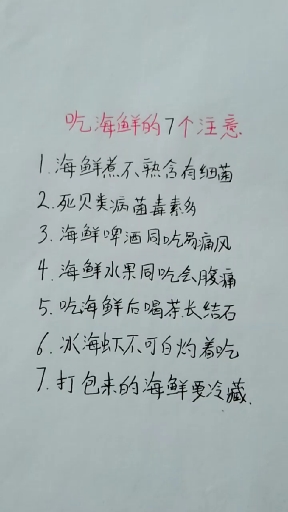 吃海鲜的7个注意
1.海鲜煮不熟含有细菌
2.死贝类病菌毒素多
3.海鲜啤酒同吃易痛风
4.海鲜水果同吃会腹痛
5.吃海鲜后喝茶长结石
6.冰海虾不可白灼着吃
7.打包来的海鲜要冷藏.